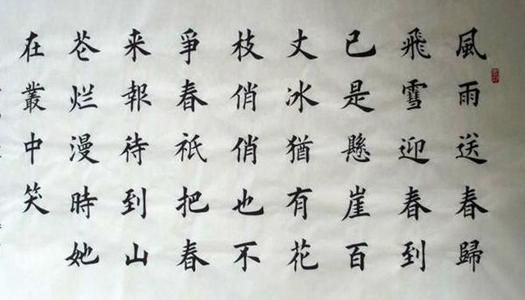 風雨送春歸
飛雪迎春到
已是懸崖百
丈冰猶有花
枝俏俏也不
爭春祇把春
来報待到山
芲烂漫時她
在叢中笑